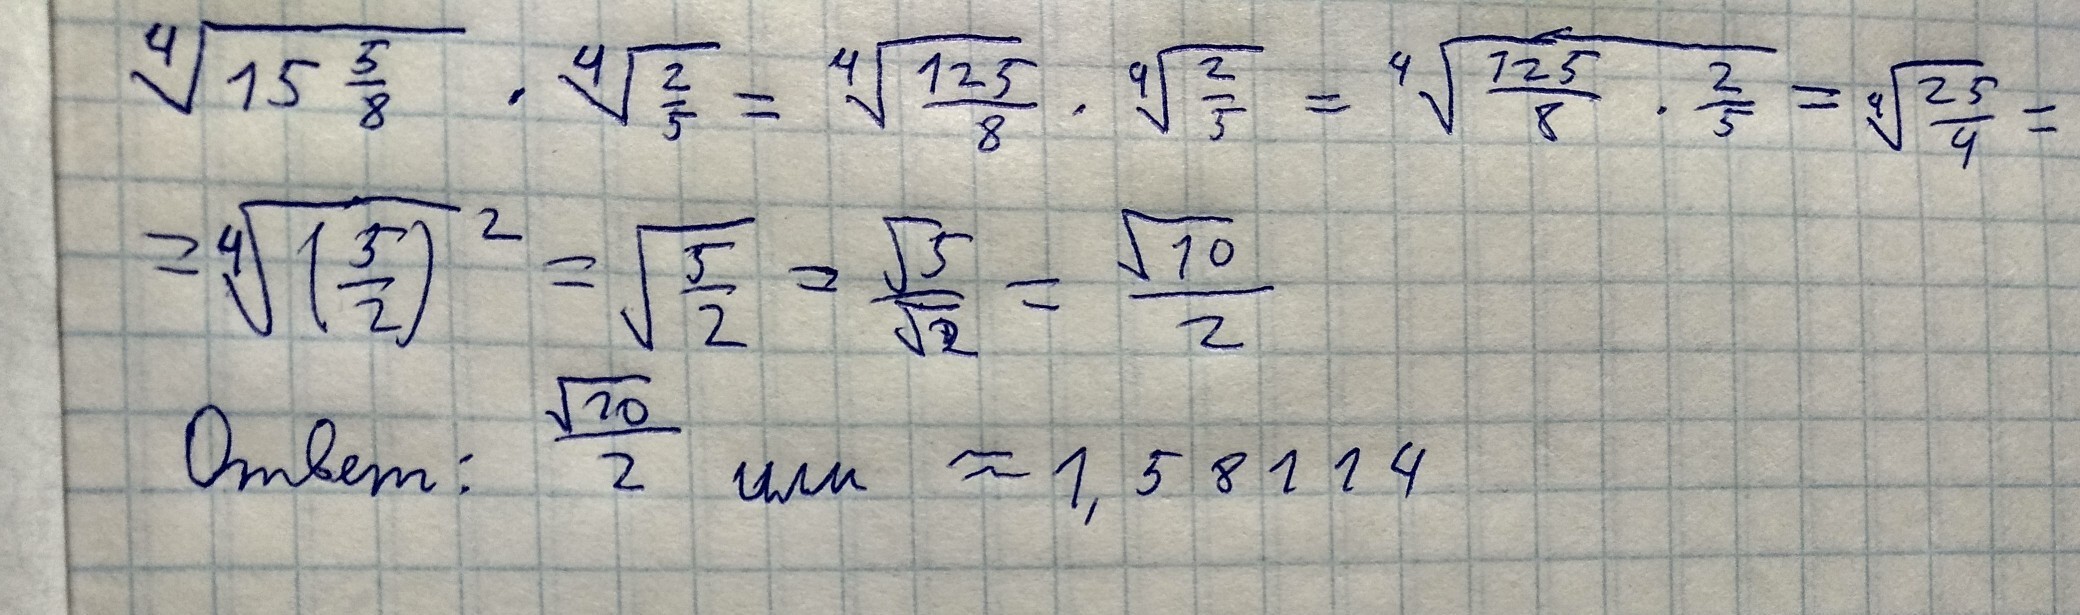 ∜(15 5/8) · ∜(2/5) = ∜(125/8) · ∜(2/5) = ∜(125/8 · 2/5) = ∜(25/4) =
= ∜((5/2)²) = √(5/2) = √5/√2 = √10/2
Ответ: √10/2 или ≈ 1,58114